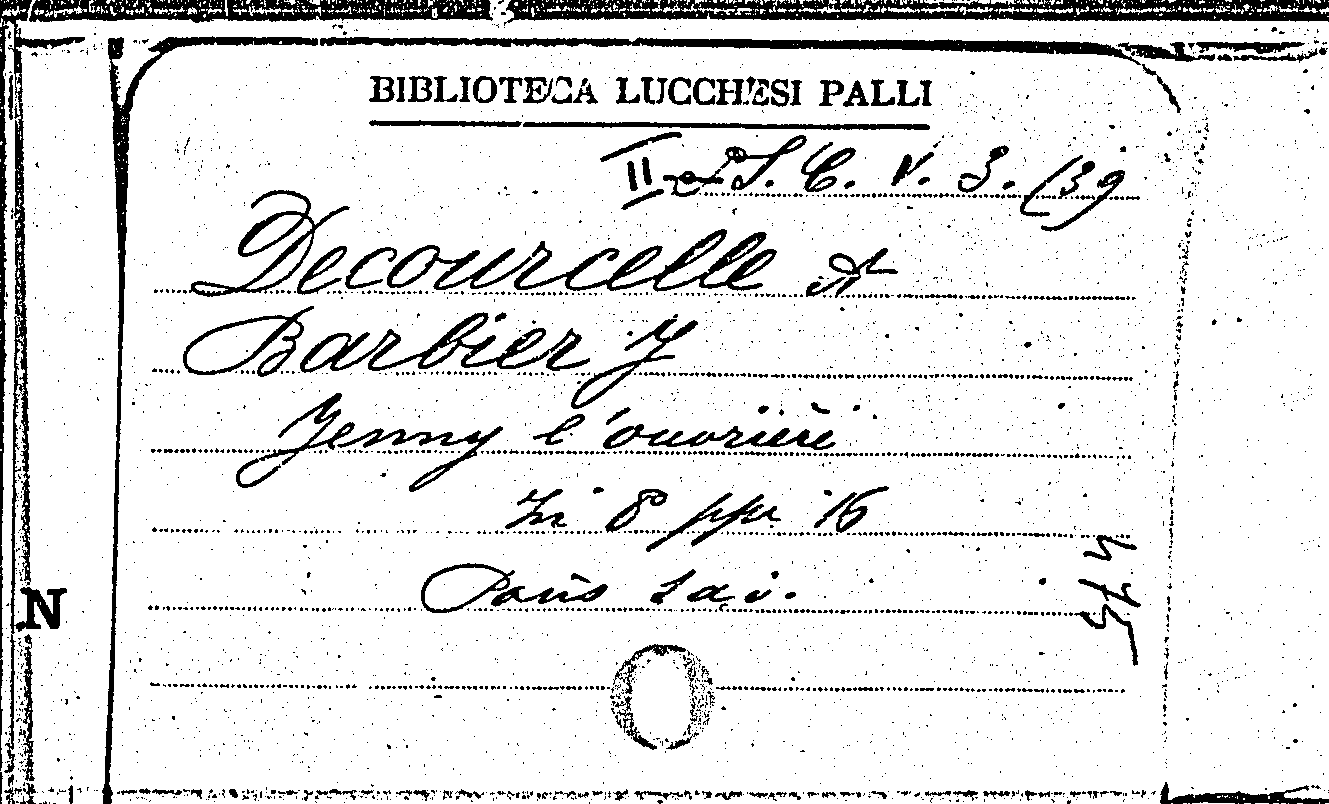 BIBLIOTECA LUCCHESI PALLI
II S. C. V. 3. (39
Decourcelle A
Barbier J
Jenny l'ouvrière
In 8 pp. 16
Paris s. a.
N